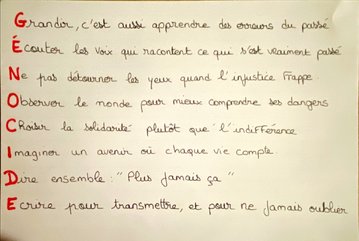 Grandir, c'est aussi apprendre des erreurs du passé
Écouter les voix qui racontent ce qui s'est vraiment passé
Ne pas détourner les yeux quand l'injustice frappe.
Observer le monde pour mieux comprendre ses dangers
Choisir la solidarité plutôt que l'indifférence
Imaginer un avenir où chaque vie compte
Dire ensemble : "Plus jamais ça"
Ecrire pour transmettre, et pour ne jamais oublier